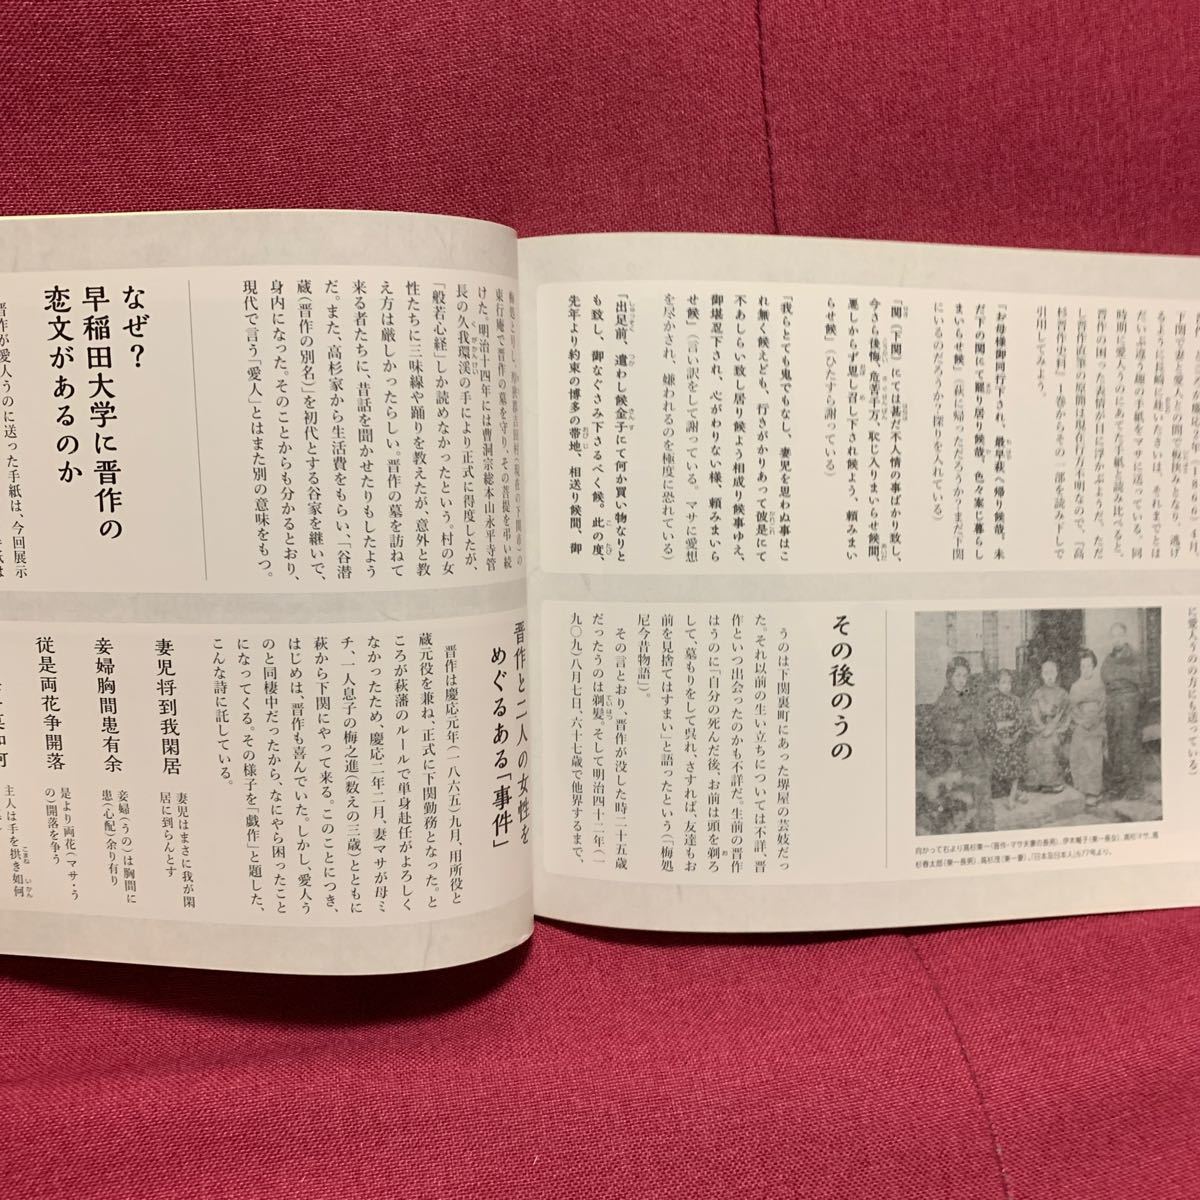 下関で妻と愛人との間で板挟みとなり、逃げ
るように長崎に赴いたさいは、それまでとは
だいぶ違う趣の手紙をマサに送っている。同
時期に愛人うのにあてた手紙と読み比べると、
晋作の困った表情が目に浮かぶようだ。ただ
し晋作直筆の原間は現在行方不明なので、『高
杉晋作史料』一巻からその一部を読み下しで
引用してみよう。
「お母様御同行下され、最早萩へ帰り候哉、未
だ下の関にて罷り居り候哉、色々案じ暮らし
まいらせ候」（萩に帰っただろうか？まだ下関
にいるのだろうか？探りを入れている）
「関（下関）にては甚だ不人情の事ばかり致し、
今さら後悔、危苦千万、恥じ入りまいらせ候間、
悪しからず思し召し下され候よう、頼みまい
らせ候」（ひたすら謝っている）
「我らとても鬼でもなし、妻児を思わぬ事はこ
れ無く候えども、行きがかりあって彼是にて
不あしらい致し居り候よう相成り候事ゆえ、
御堪忍下され、心がわりない様、頼みまいら
せ候」（言い訳をして謝っている。マサに愛想
を尽かされ、嫌われるのを極度に恐れている）
「出足前、遣わし候金子にて何か買い物なりと
も致し、御なぐさみ下さるべく候。此の度、
先年より約束の博多の帯地、相送り候間、御
に愛人うのの方にも送っている）
向かって右より高杉東一（晋作・マサ夫妻の長男）、伊木暢子（東一長女）、高杉マサ、高
杉春太郎（東一長男）、高杉茂（東一妻）。『日本及日本人』677号より。
その後のうの
うのは下関裏町にあった堺屋の芸妓だっ
た。それ以前の生い立ちについては不詳。晋
作といつ出会ったのかも不詳だ。生前の晋作
はうのに「自分の死んだ後、お前は頭を剃ろ
して、墓もりをして呉れ、さすれば、友達もお
前を見捨てはすまい」と語ったという（「梅処
尼今昔物語」）。
その言とおり、晋作が没した時二十五歳
だったうのは剃髪。そして明治四十二年（一
九〇九）八月七日、六十七歳で他界するまで、
東行庵で晋作の墓を守り、その菩提を弔い続
けた。明治十四年には曹洞宗総本山永平寺管
長の久我環渓の手により正式に得度したが、
「般若心経」しか読めなかったという。村の女
性たちに三味線や踊りを教えたが、意外と教
え方は厳しかったらしい。晋作の墓を訪ねて
来る者たちに、昔話を聞かせたりもしたよう
だ。また、高杉家から生活費をもらい、「谷潜
蔵（晋作の別名）」を初代とする谷家を継いで、
身内になった。そのことからも分かるとおり、
現代で言う「愛人」とはまた別の意味をもつ。
なぜ？
早稲田大学に晋作の
恋文があるのか
晋作が愛人うのに送った手紙は、今回展示
晋作と二人の女性を
めぐるある「事件」
晋作は慶応元年（一八六五）九月、用所役と
蔵元役を兼ね、正式に下関勤務となった。と
ころが萩藩のルールで単身赴任がよろしく
なかったため、慶応二年二月、妻マサが母ミ
チ、一人息子の梅之進（数えの三歳）とともに
萩から下関にやって来る。このことにつき、
はじめは、晋作も喜んでいた。しかし、愛人う
のと同棲中だったから、なにやら困ったこと
になってくる。その様子を「戯作」と題した、
こんな詩に託している。
妻児将到我閑居
妻児はまさに我が閑
居に到らんとす
妾婦胸間患有余
妾婦（うの）は胸間に
患（心配）余り有り
従是両花争開落
是より両花（マサ・う
の）開落を争う
主人は手を拱き如何